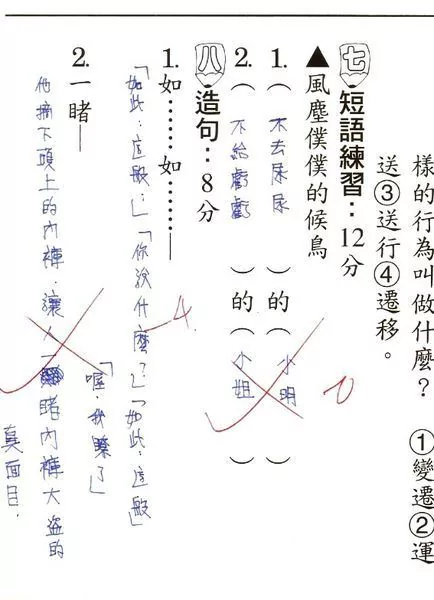 樣的行為叫做什麼？ ①變遷②運
送③送行④遷移。
七 短語練習：12分
▲風塵僕僕的候鳥
1.（不去尿尿）的（小明）
2.（不給虧虧）的（小姐）
八 造句：8分
1.如……如……—
「如此…這般…」「你說什麼？」「如此…這般」
「喔，我瞭了」
-4
0
2.一睹—
他摘下頭上的內褲，讓人一睹內褲大盜的
真面目。